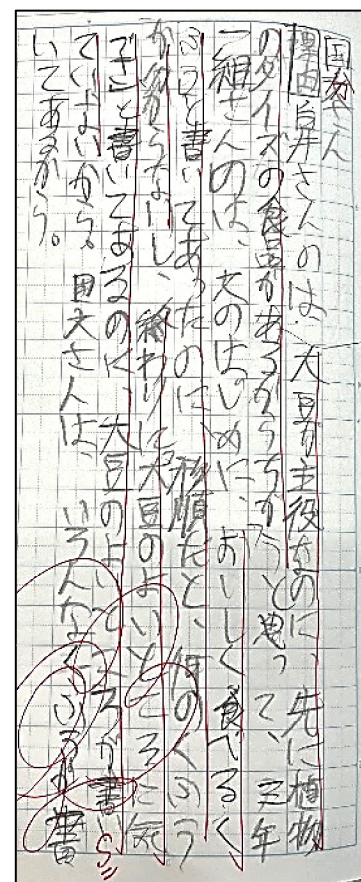 国分さん
理由白井さんのは、大豆が主役なのに、先に植物
のダイズの食品があるからちがうと思って、三年
一組さんのは、文のはじめに、おいしく食べるく
ふうと書いてあったのに、移順だと、何のくふう
か分からないし、終わりに大豆のよいところに気
でと書いてあるのに、大豆のよいところが書い
ていないから。国大さんは、いろんなくふうが書
いてあるから。